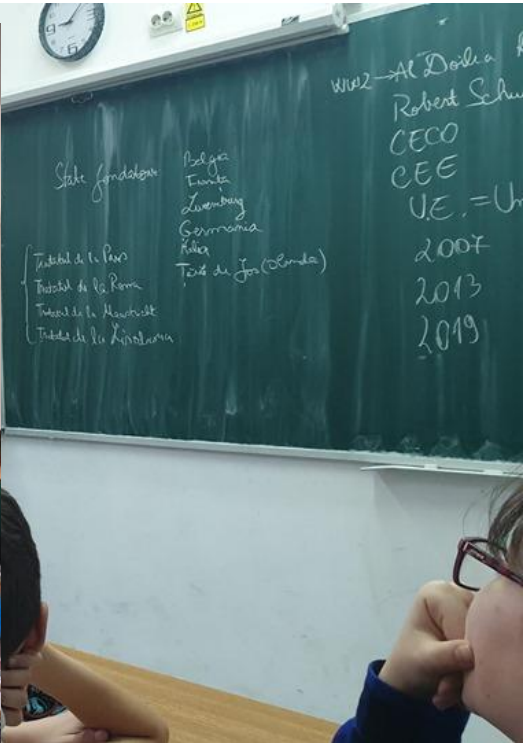 State fondatoare
Belgia
Franta
Luxemburg
Germania
Italia
Tările de Jos (Olanda)
Tratatul de la Paris
Tratatul de la Roma
Tratatul de la Maastricht
Tratatul de la Lisabona
WW2 → Al Doilea
Robert Schu
CECO
CEE
U.E. = Un
2007
2013
2019